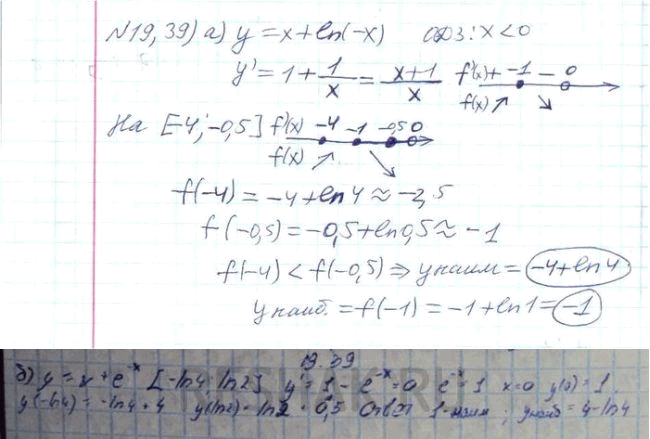 N19,39) а) y = x + ln(-x) ОДЗ: x < 0
y' = 1 + 1/x = (x+1)/x f'(x) + -1 - 0
f(x) ↗ ↘
На [-4; -0,5] f'(x) -4 -1 -0,5 0
f(x) ↗ ↘
f(-4) = -4 + ln 4 ≈ -2,5
f(-0,5) = -0,5 + ln 0,5 ≈ -1
f(-4) < f(-0,5) ⇒ y наим = -4 + ln 4
y наиб. = f(-1) = -1 + ln 1 = -1
19.39
б) y = x + e^-x [-ln4 ln2] y' = 1 - e^-x = 0 e^-x = 1 x = 0 y(0) = 1
y(-ln4) = -ln4 + 4 y(ln2) = ln2 + 0,5 Ответ 1-наим ; yнаиб = 4-ln4